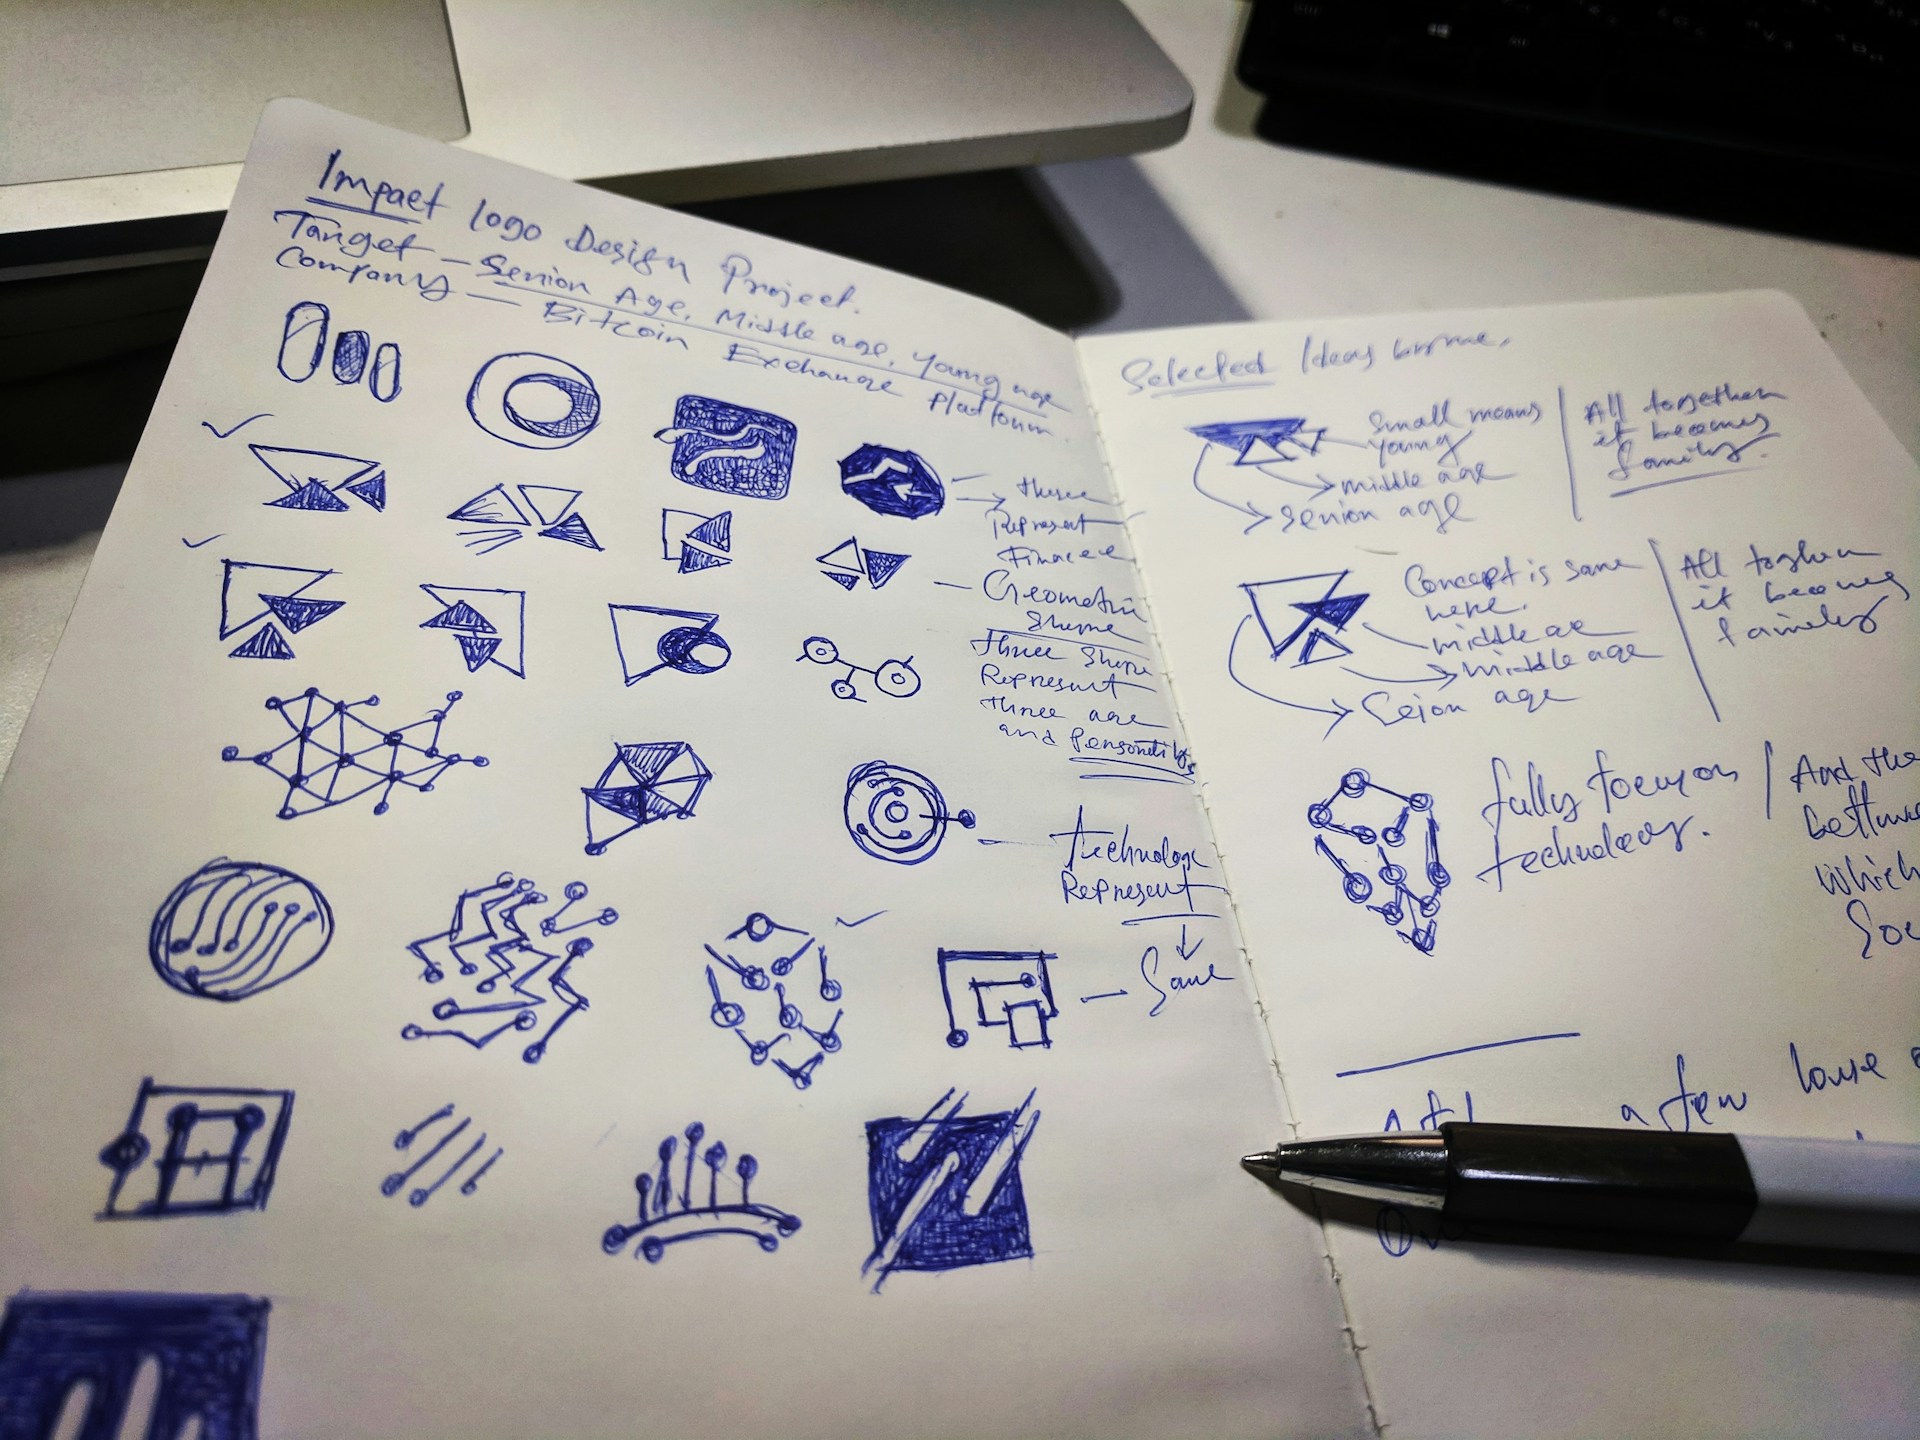 Impact logo Design Project.
Target - Senior Age, Middle age, Young age
Company - Bitcoin Exchange Platform.
these
Represent
Finance
Geometric
Shape
three Shape
Represent
three age
and Personality
technology
Represent
Same
Selected Ideas
Small means
young
middle age
senior age
All together
it becomes
family.
Concept is same
here.
middle age
middle age
Senior age
All together
it becomes
family
fully focus on
technology.
And the
Which
a few